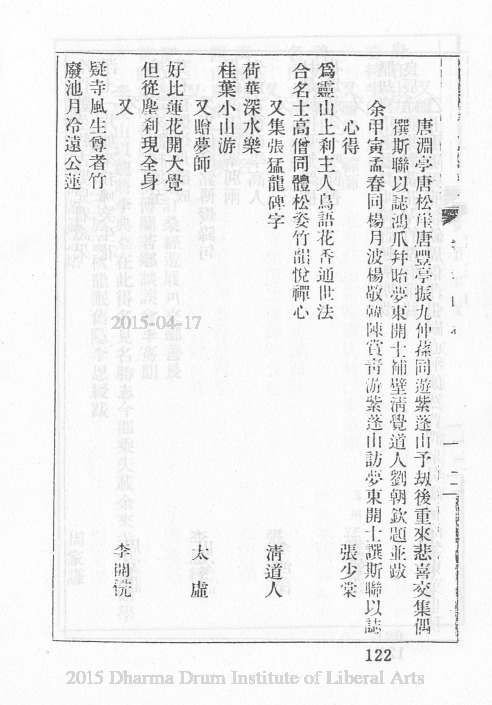 唐淵亭唐松崖唐豐亭振九仲蓀同遊紫蓬山予刼後重來悲喜交集偶
撰斯聯以誌鴻爪幷貽夢東開士補壁淸覺道人劉朝欽題並跋
余甲寅孟春同楊月波楊敬韓陳賞靑游紫蓬山訪夢東開士譔斯聯以誌
心得 張少棠
爲靈山上刹主人鳥語花香通世法
合名士高僧同體松姿竹韻悅禪心
又集張猛龍碑字 淸道人
荷華深水樂
桂葉小山游
又贈夢師 太虛
好比蓮花開大覺
但從塵刹現全身
又 李開侁
疑寺風生尊者竹
廢池月冷遠公蓮
122
2015-04-17
2015 Dharma Drum Institute of Liberal Arts